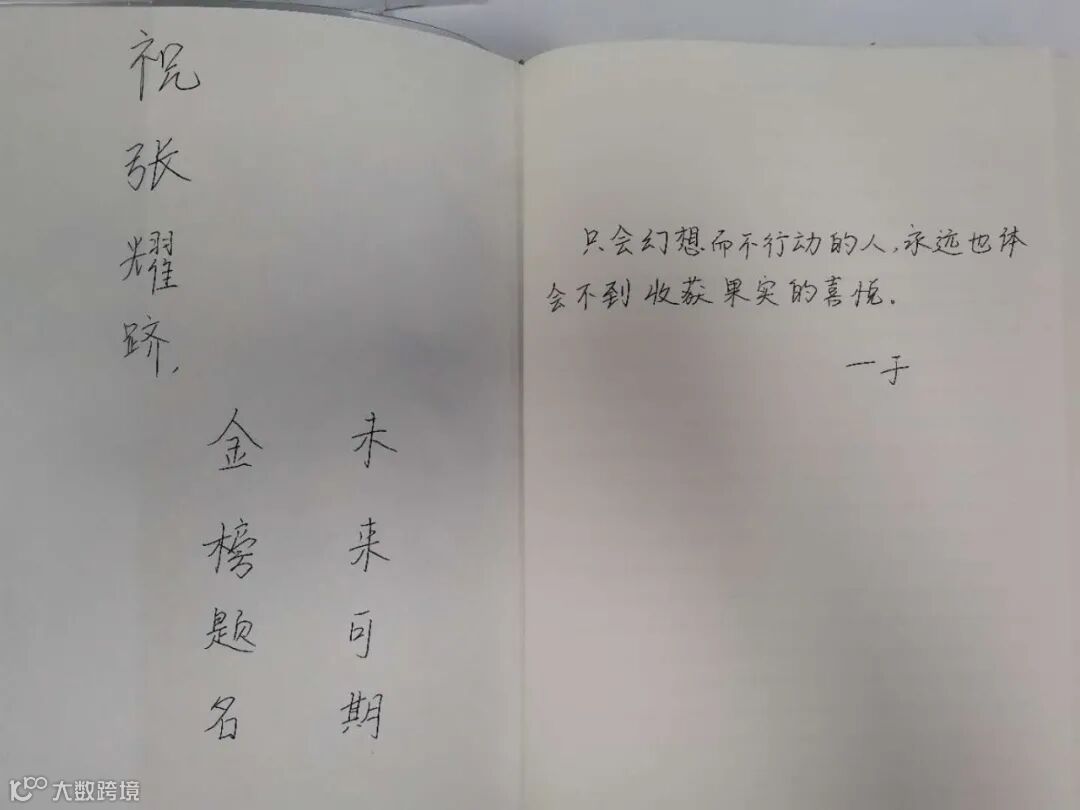 祝张耀跻,
金榜题名
未来可期
只会幻想而不行动的人,永远也体
会不到收获果实的喜悦.
一于
大数跨境